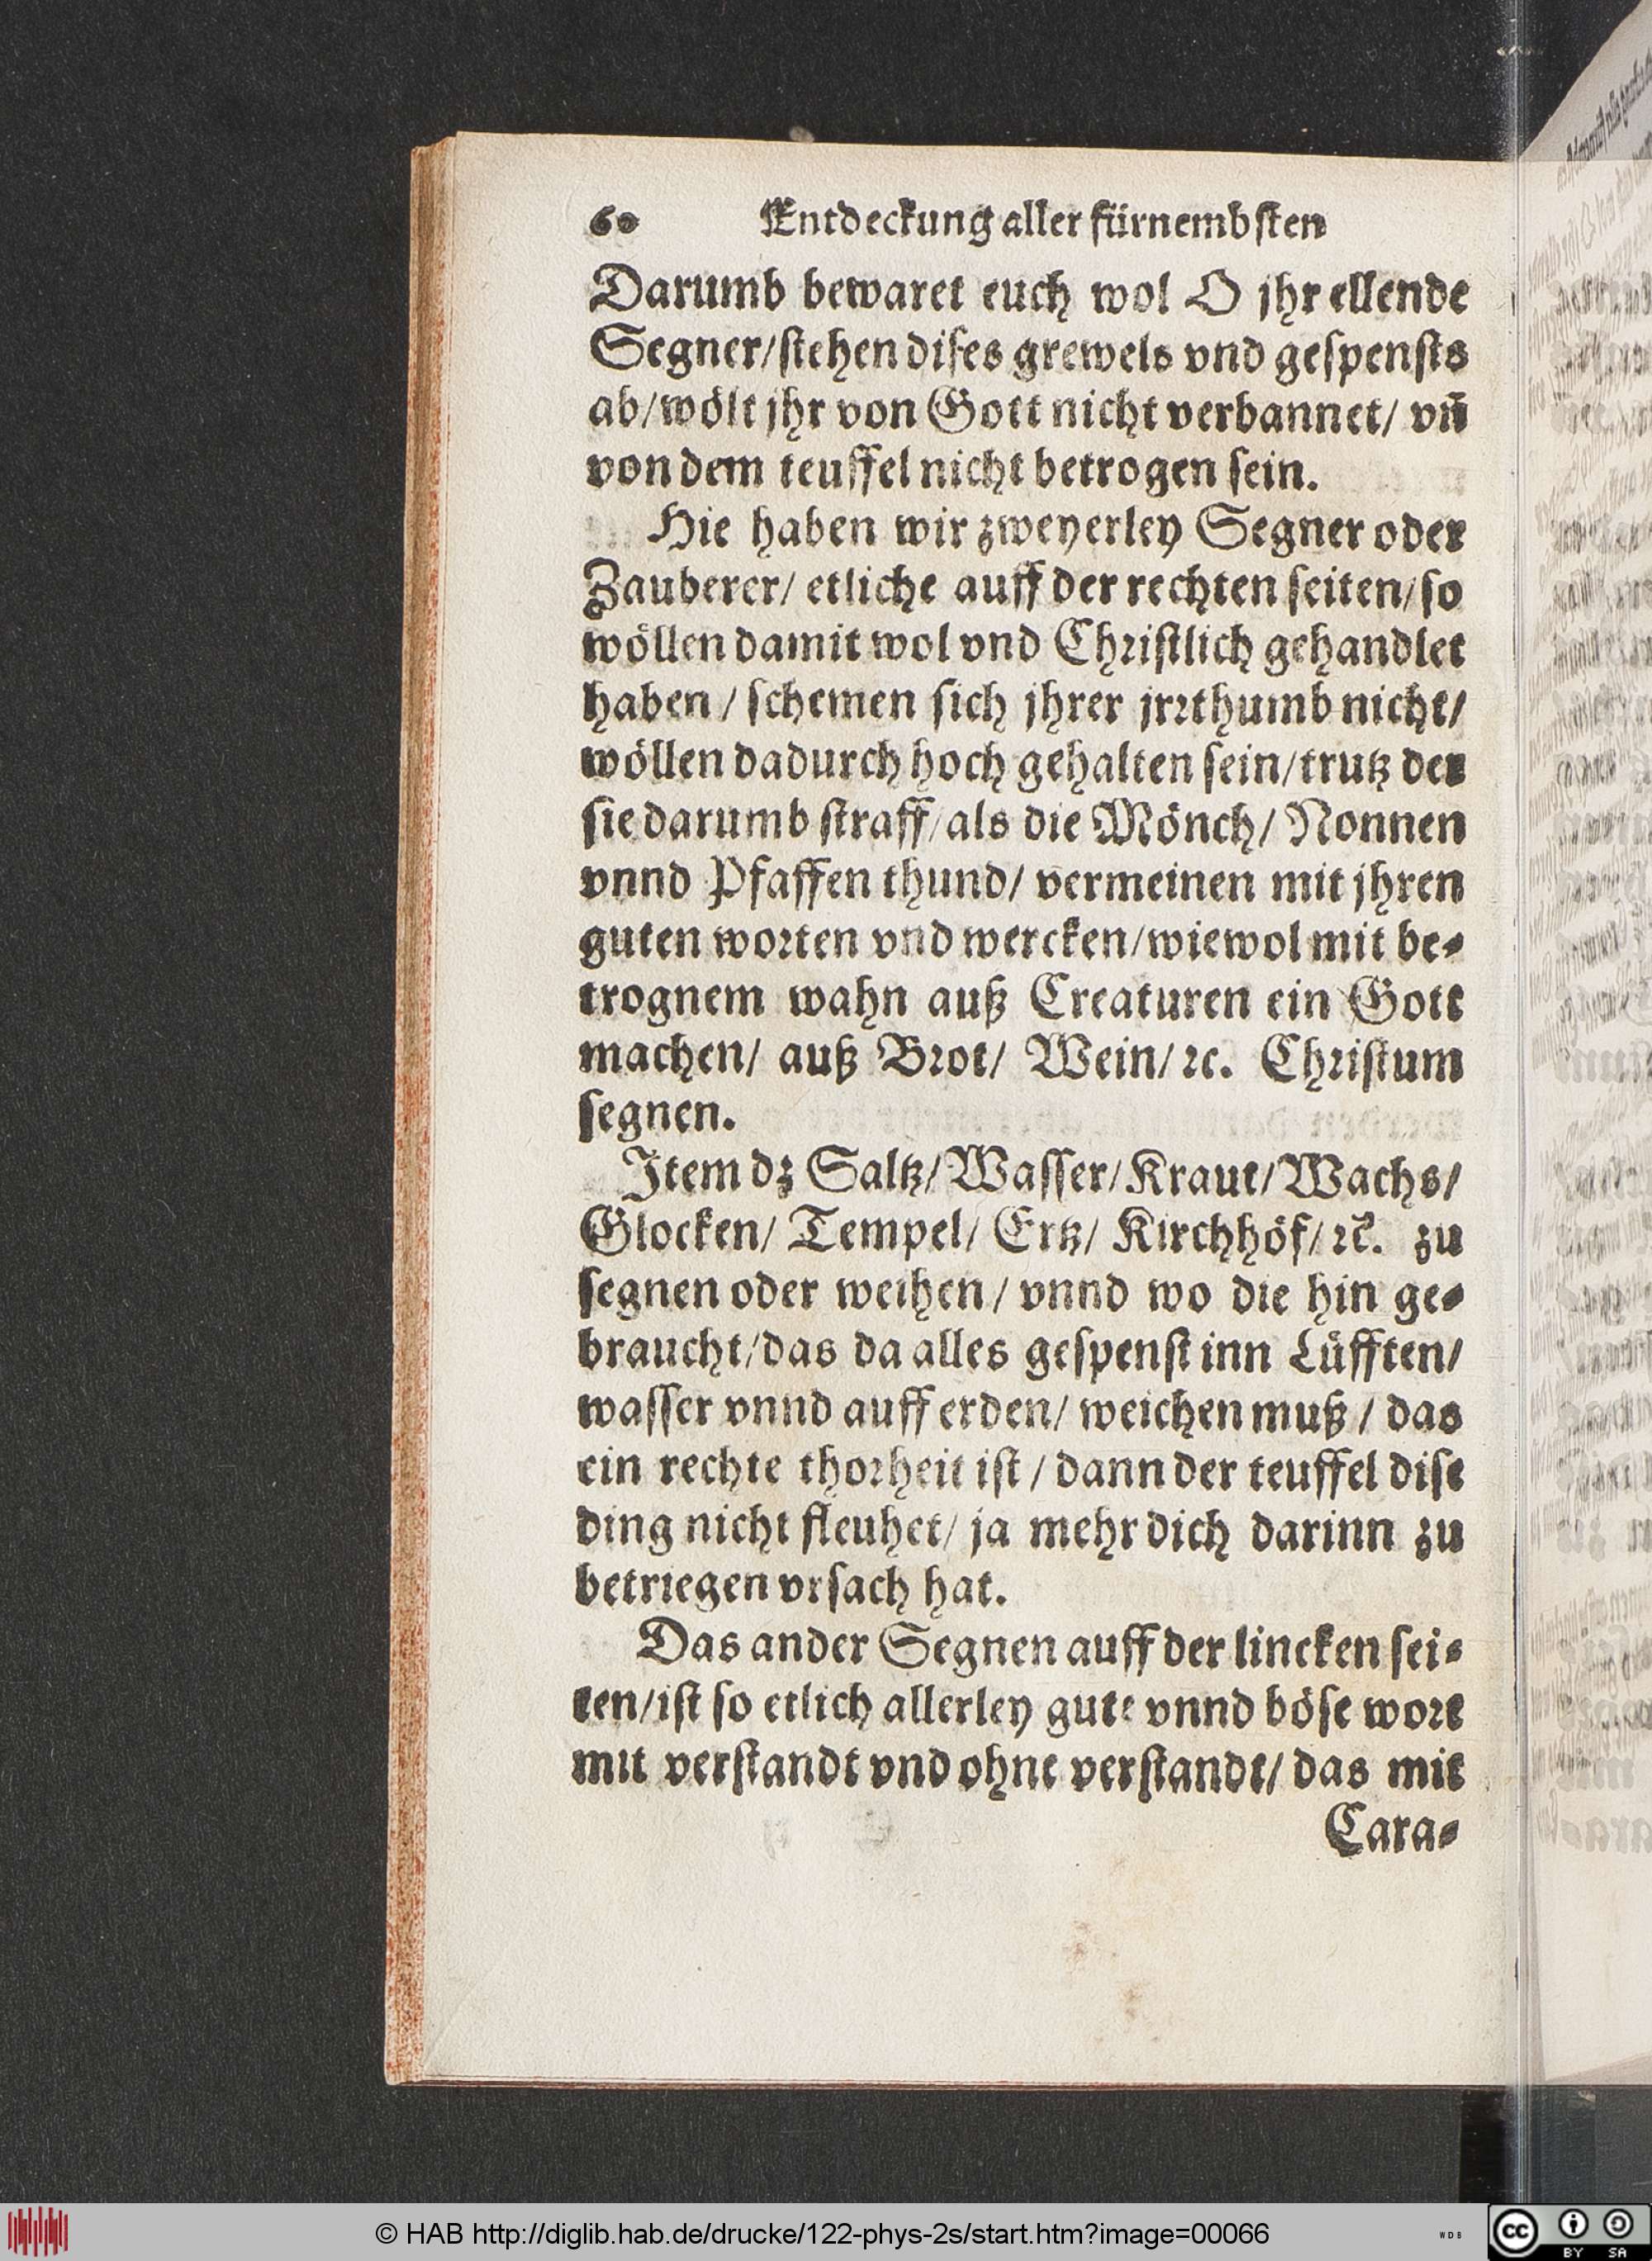 60 Entdeckung aller fürnembsten
Darumb bewaret euch wol O jhr ellende
Segner/stehen dises grewels vnd gespensts
ab/wölt jhr von Gott nicht verbannet/ vn̄
von dem teuffel nicht betrogen sein.
Hie haben wir zweyerley Segner oder
Zauberer/ etliche auff der rechten seiten/so
wöllen damit wol vnd Christlich gehandlet
haben/ schemen sich jhrer jrrthumb nicht/
wöllen dadurch hoch gehalten sein/trutz der
sie darumb straff/als die Mönch/ Nonnen
vnnd Pfaffen thund/ vermeinen mit jhren
guten worten vnd wercken/wiewol mit be⸗
trognem wahn auß Creaturen ein Gott
machen/ auß Brot/ Wein/ ꝛc. Christum
segnen.
Item dz Saltz/Wasser/Kraut/Wachs/
Glocken/ Tempel/ Ertz/ Kirchhöf/ ꝛc̄. zu
segnen oder weihen/ vnnd wo die hin ge⸗
braucht/das da alles gespenst inn Lüfften/
wasser vnnd auff erden/ weichen muß/ das
ein rechte thorheit ist/ dann der teuffel dise
ding nicht fleuhet/ ja mehr dich darinn zu
betriegen vrsach hat.
Das ander Segnen auff der lincken sei⸗
ten/ist so etlich allerley gute vnnd böse wort
mit verstandt vnd ohne verstandt/ das mit
Cara⸗
© HAB http://diglib.hab.de/drucke/122-phys-2s/start.htm?image=00066
WDB
cc
BY SA